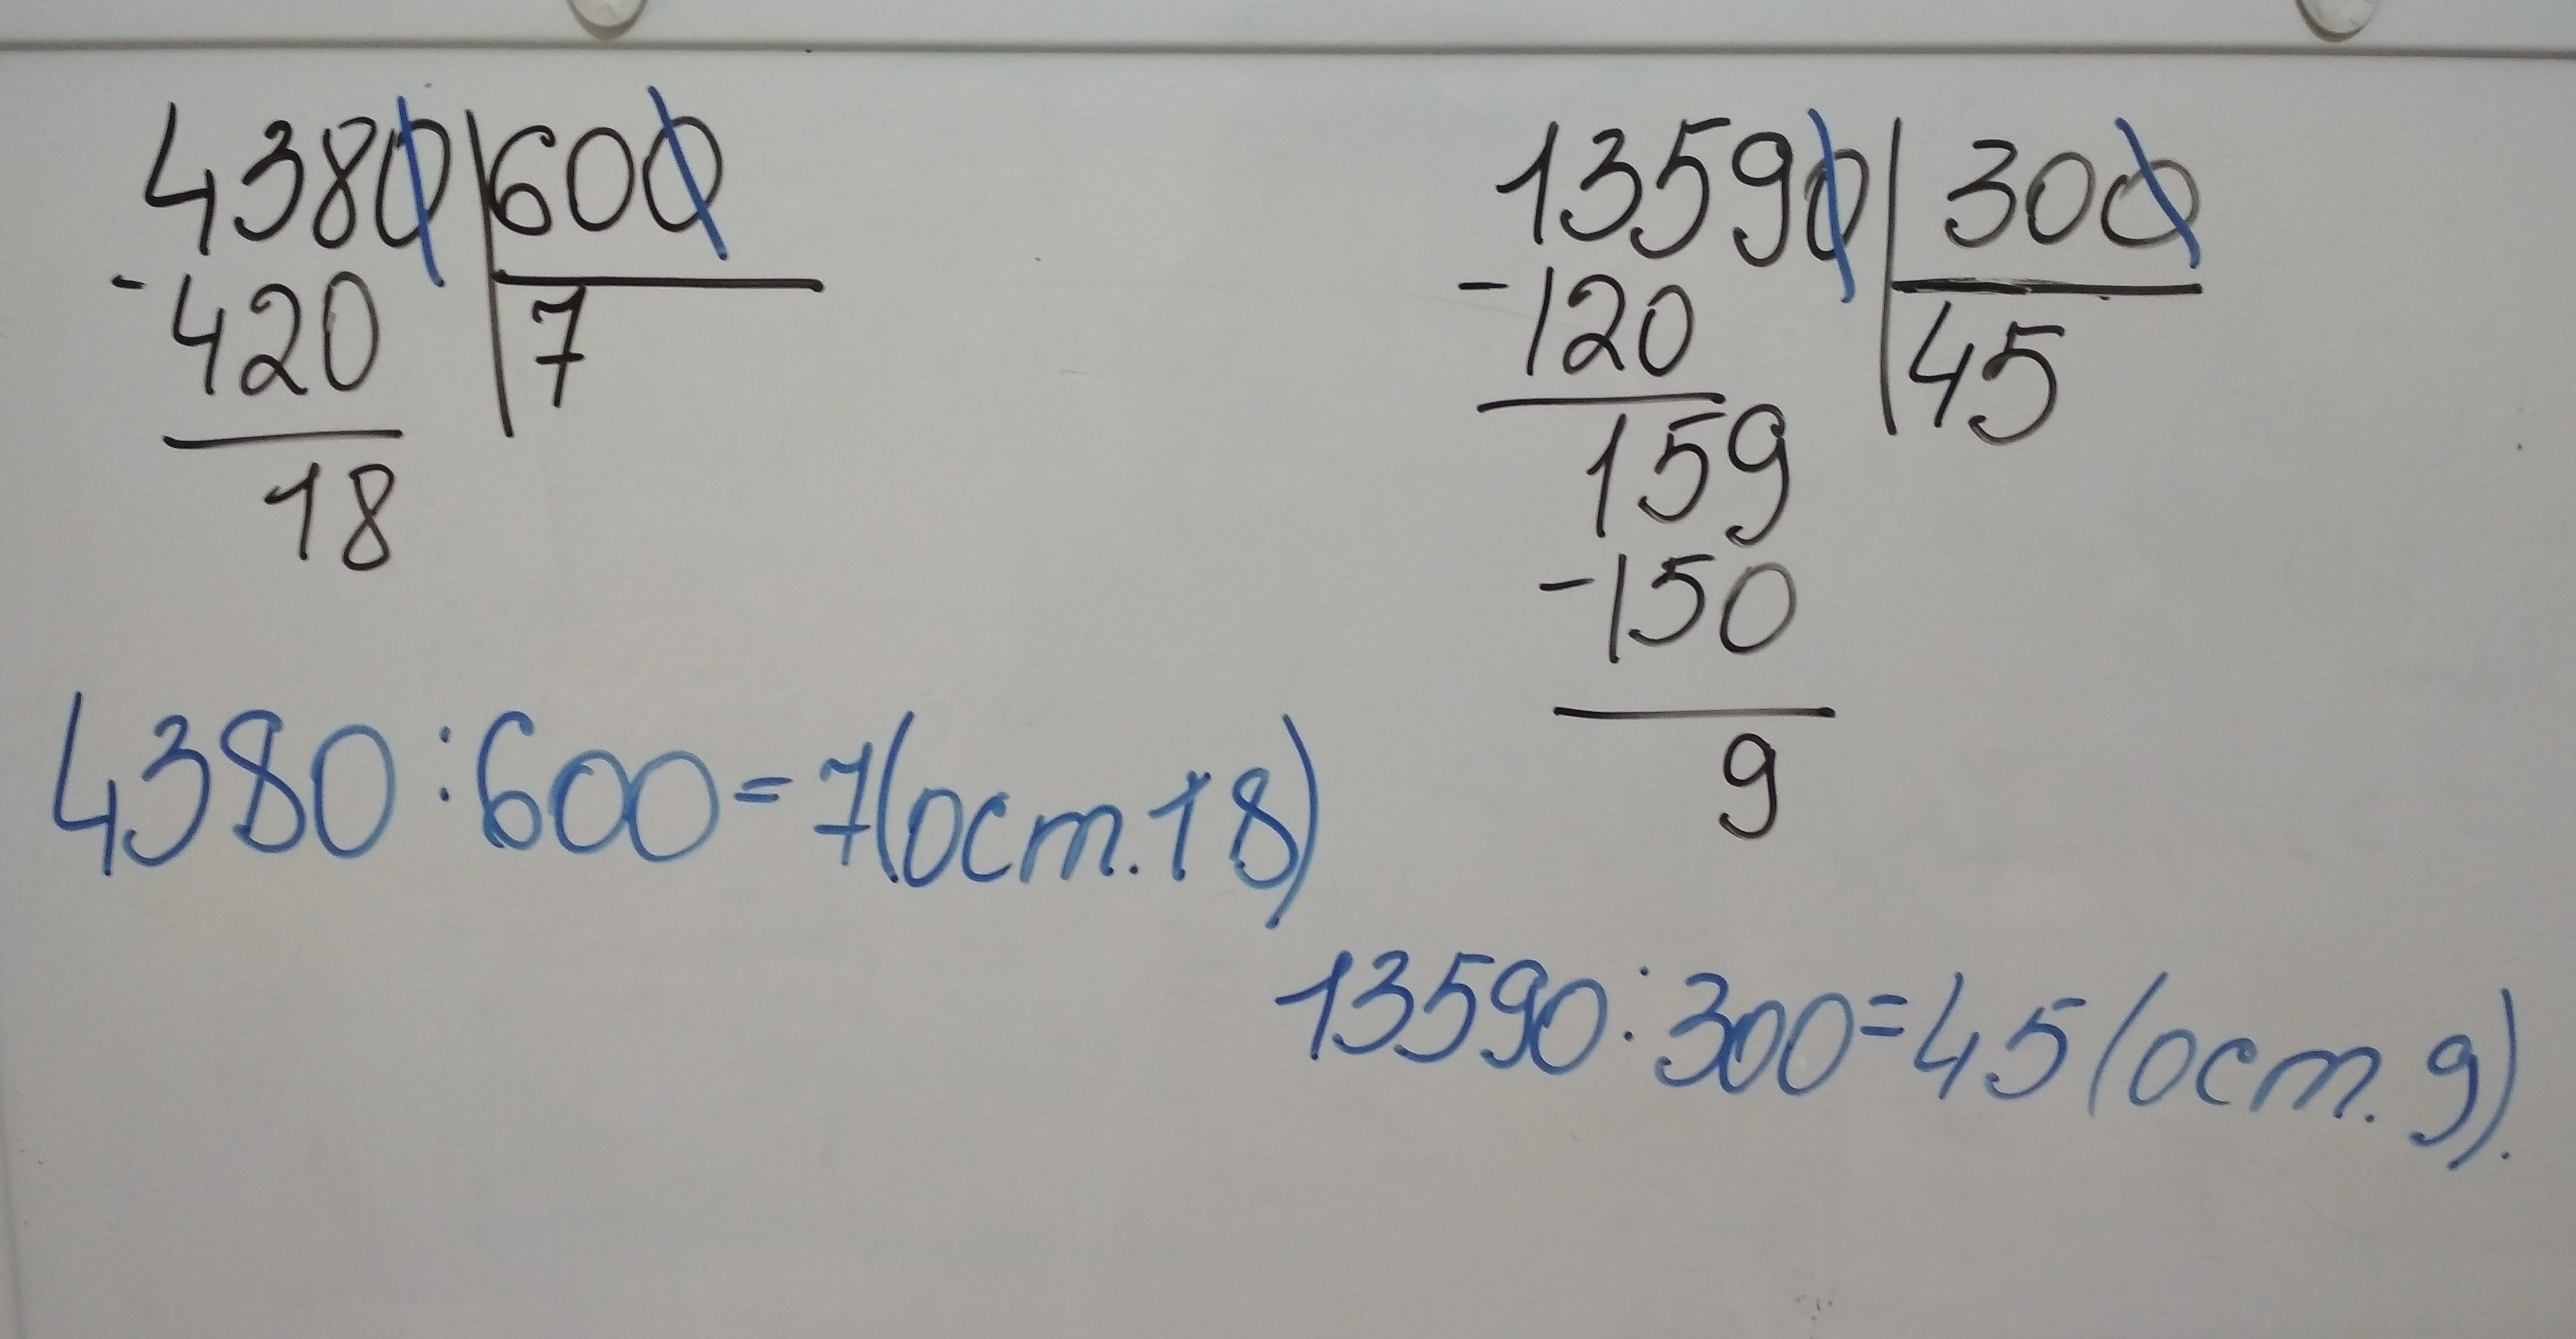 4380 600
- 420 7
18
4380 : 600 = 7 (ост. 18)
13590 300
- 120 45
159
- 150
9
13590 : 300 = 45 (ост. 9).